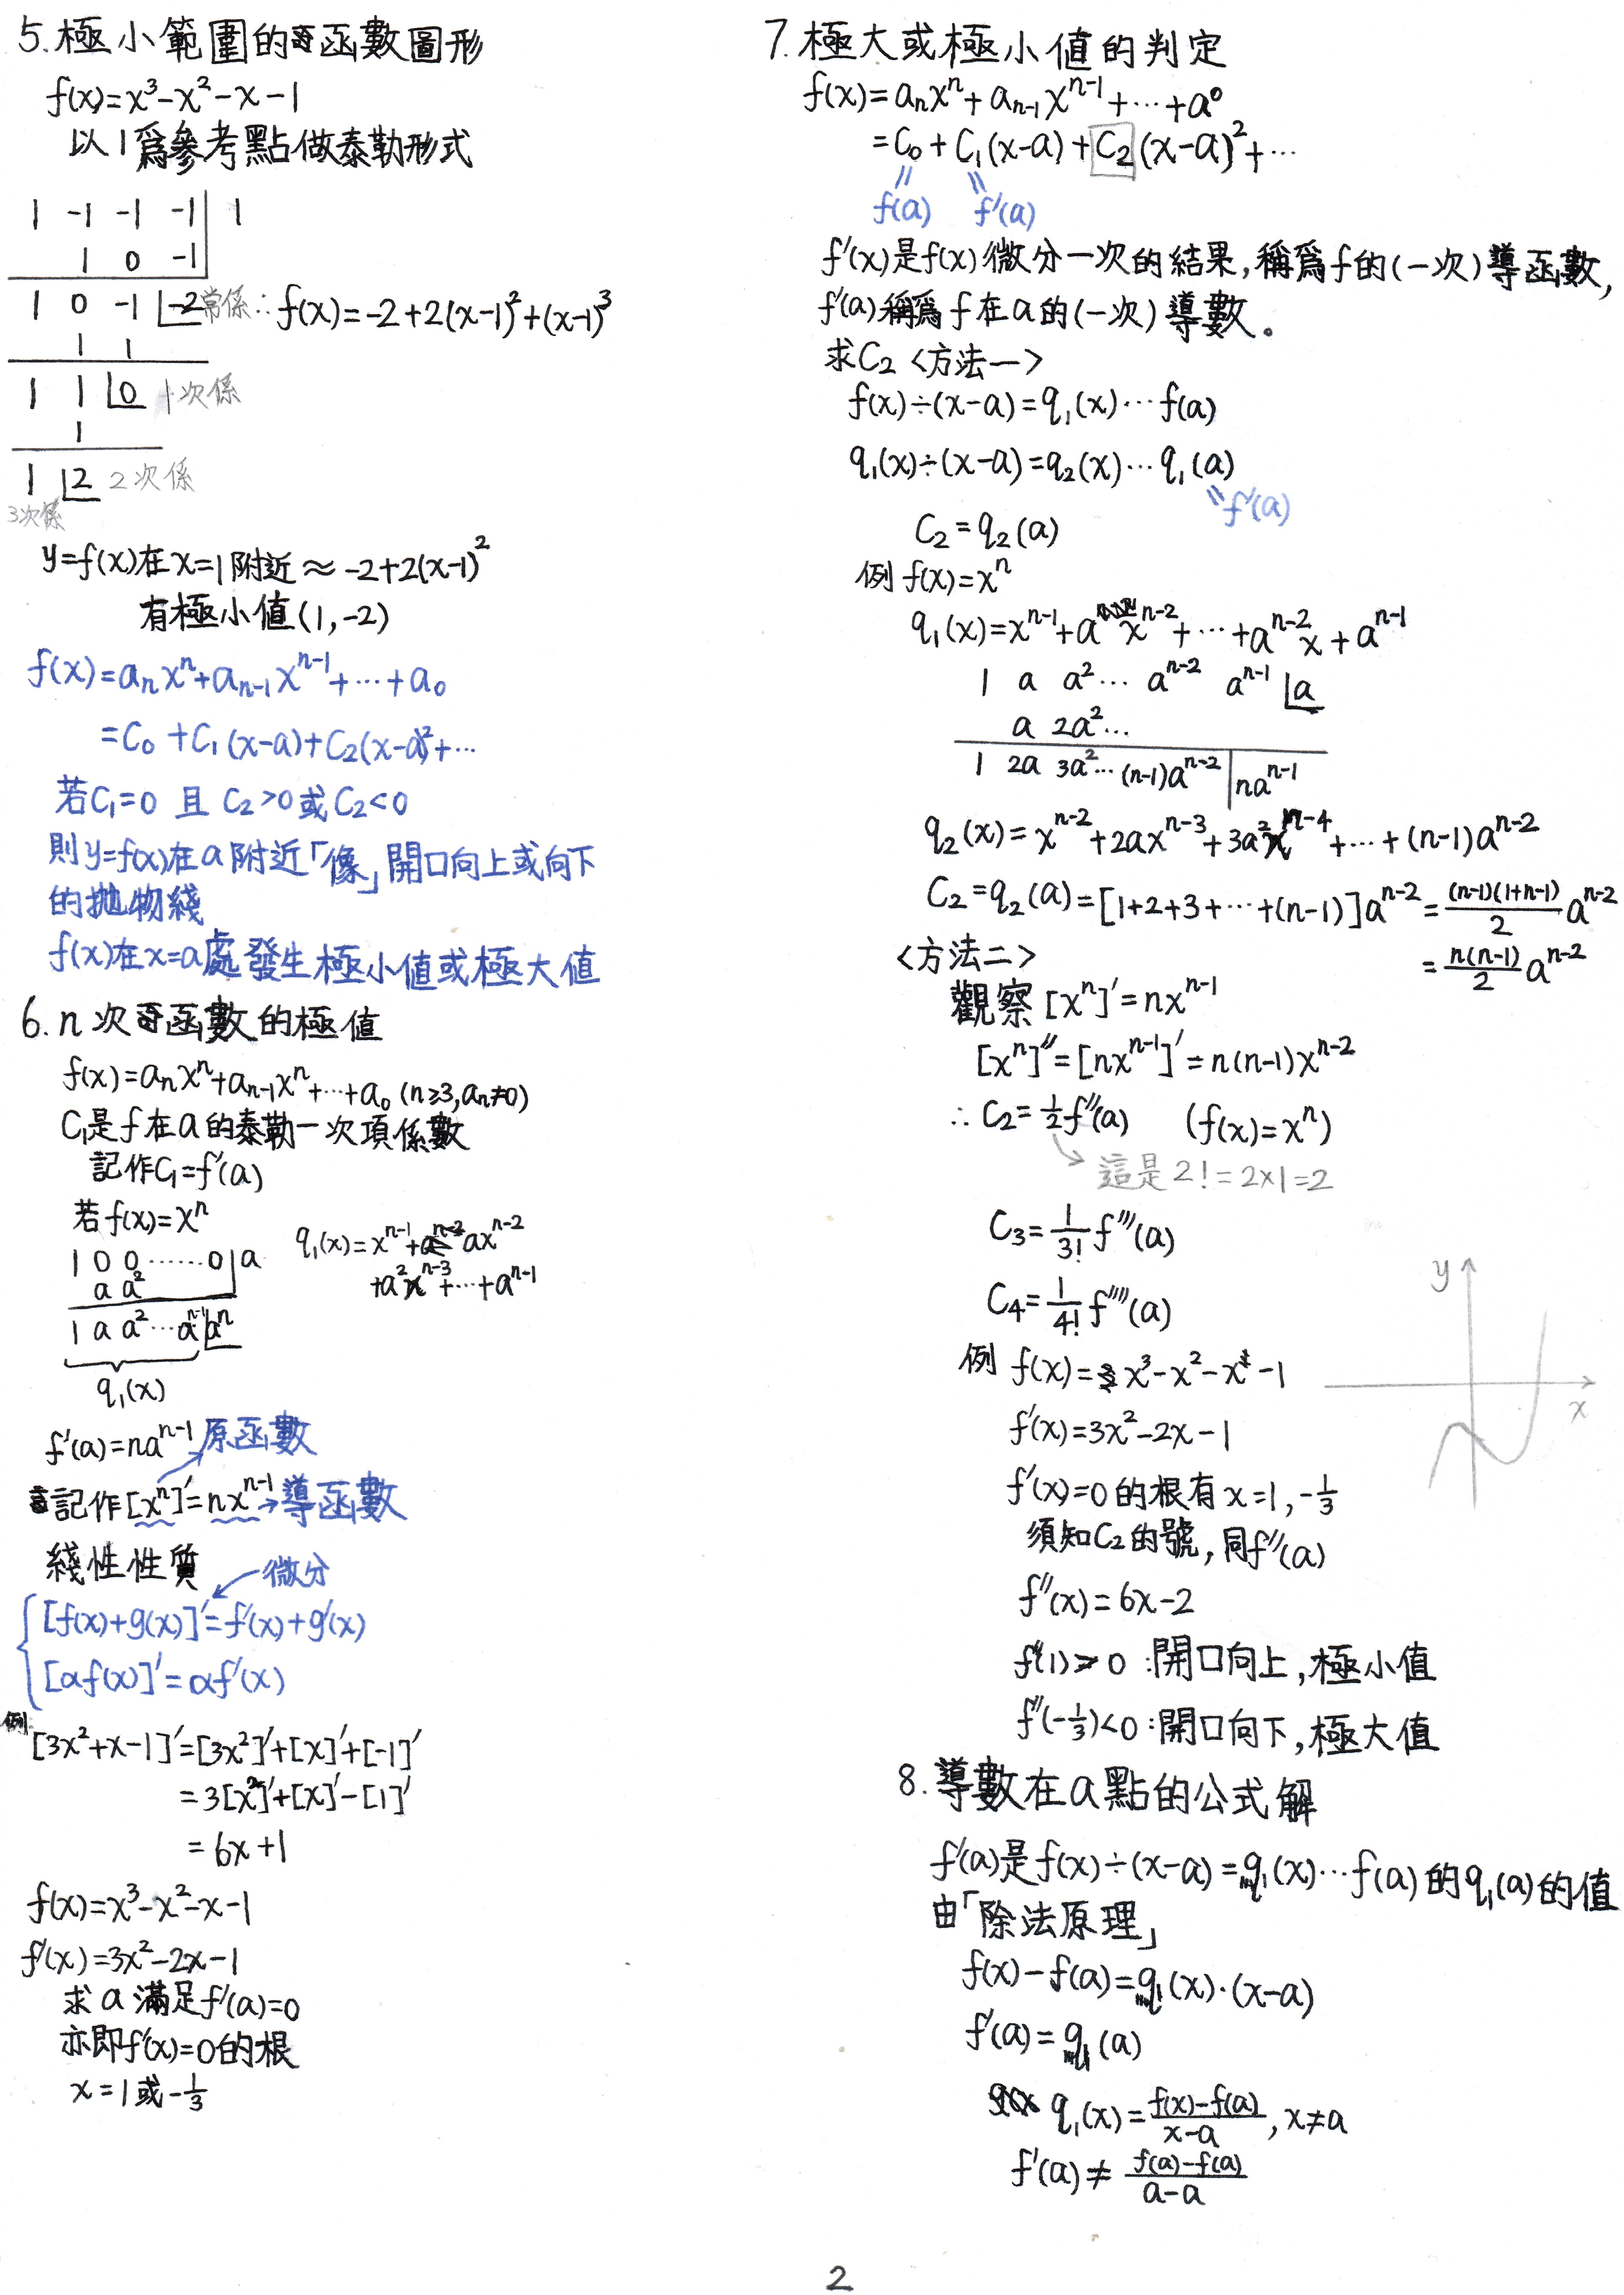 5. 極小範圍的函數圖形
f(x)=x³-x²-x-1
以1爲參考點做泰勒形式
1 -1 -1 -1 | 1
1 0 -1
1 0 -1 |-2 常係 ∴ f(x)=-2+2(x-1)²+(x-1)³
1 1
1 1 |0 1次係
1
1 |2 2次係
3次係
y=f(x)在x=1附近≈-2+2(x-1)²
有極小值(1,-2)
f(x)=aₙxⁿ+aₙ₋₁xⁿ⁻¹+⋯+a₀
=C₀+C₁(x-a)+C₂(x-a)²+⋯
若C₁=0 且 C₂>0或C₂<0
則y=f(x)在a附近「像」開口向上或向下
的拋物綫
f(x)在x=a處發生極小值或極大值
6. n次函數的極值
f(x)=aₙxⁿ+aₙ₋₁xⁿ+⋯+a₀ (n≥3,aₙ≠0)
C₁是f在a的泰勒一次項係數
記作C₁=f'(a)
若f(x)=xⁿ
1 0 0 ⋯⋯ 0 | a
a a²
1 a a² ⋯ aⁿ⁻¹ |aⁿ
q₁(x)
q₁(x)=xⁿ⁻¹+axⁿ⁻²
+a²xⁿ⁻³+⋯+aⁿ⁻¹
f'(a)=naⁿ⁻¹ 原函數
記作[xⁿ]'=nxⁿ⁻¹→導函數
綫性性質 微分
[f(x)+g(x)]'=f'(x)+g'(x)
[αf(x)]'=αf'(x)
例:
[3x²+x-1]'=[3x²]'+[x]'+[-1]'
=3[x²]'+[x]'-[1]'
=6x+1
f(x)=x³-x²-x-1
f'(x)=3x²-2x-1
求a滿足f'(a)=0
亦即f'(x)=0的根
x=1或-1/3
7. 極大或極小值的判定
f(x)=aₙxⁿ+aₙ₋₁xⁿ⁻¹+⋯+a⁰
=C₀+C₁(x-a)+C₂(x-a)²+⋯
= =
f(a) f'(a)
f'(x)是f(x)微分一次的結果,稱爲f的(一次)導函數,
f'(a)稱爲f在a的(一次)導數。
求C₂〈方法一〉
f(x)÷(x-a)=q₁(x)⋯f(a)
q₁(x)÷(x-a)=q₂(x)⋯q₁(a)
=f'(a)
C₂=q₂(a)
例 f(x)=xⁿ
q₁(x)=xⁿ⁻¹+axⁿ⁻²+⋯+aⁿ⁻²x+aⁿ⁻¹
1 a a²⋯ aⁿ⁻² aⁿ⁻¹ |a
a 2a²⋯
1 2a 3a²⋯(n-1)aⁿ⁻² |naⁿ⁻¹
q₂(x)=xⁿ⁻²+2axⁿ⁻³+3a²xⁿ⁻⁴+⋯+(n-1)aⁿ⁻²
C₂=q₂(a)=[1+2+3+⋯+(n-1)]aⁿ⁻²=(n-1)(1+n-1)/2 aⁿ⁻²
=n(n-1)/2 aⁿ⁻²
〈方法二〉
觀察[xⁿ]'=nxⁿ⁻¹
[xⁿ]''=[nxⁿ⁻¹]'=n(n-1)xⁿ⁻²
∴ C₂=1/2 f''(a) (f(x)=xⁿ)
這是2!=2×1=2
C₃=1/3! f'''(a)
C₄=1/4! f''''(a)
例 f(x)=x³-x²-x-1
f'(x)=3x²-2x-1
f'(x)=0的根有x=1,-1/3
須知C₂的號,同f''(a)
f''(x)=6x-2
f''(1)>0:開口向上,極小值
f''(-1/3)<0:開口向下,極大值
y
x
8. 導數在a點的公式解
f'(a)是f(x)÷(x-a)=q₁(x)⋯f(a)的q₁(a)的值
由「除法原理」
f(x)-f(a)=q₁(x)·(x-a)
f'(a)=q₁(a)
q₁(x)=f(x)-f(a)/x-a, x≠a
f'(a)≠f(a)-f(a)/a-a
2